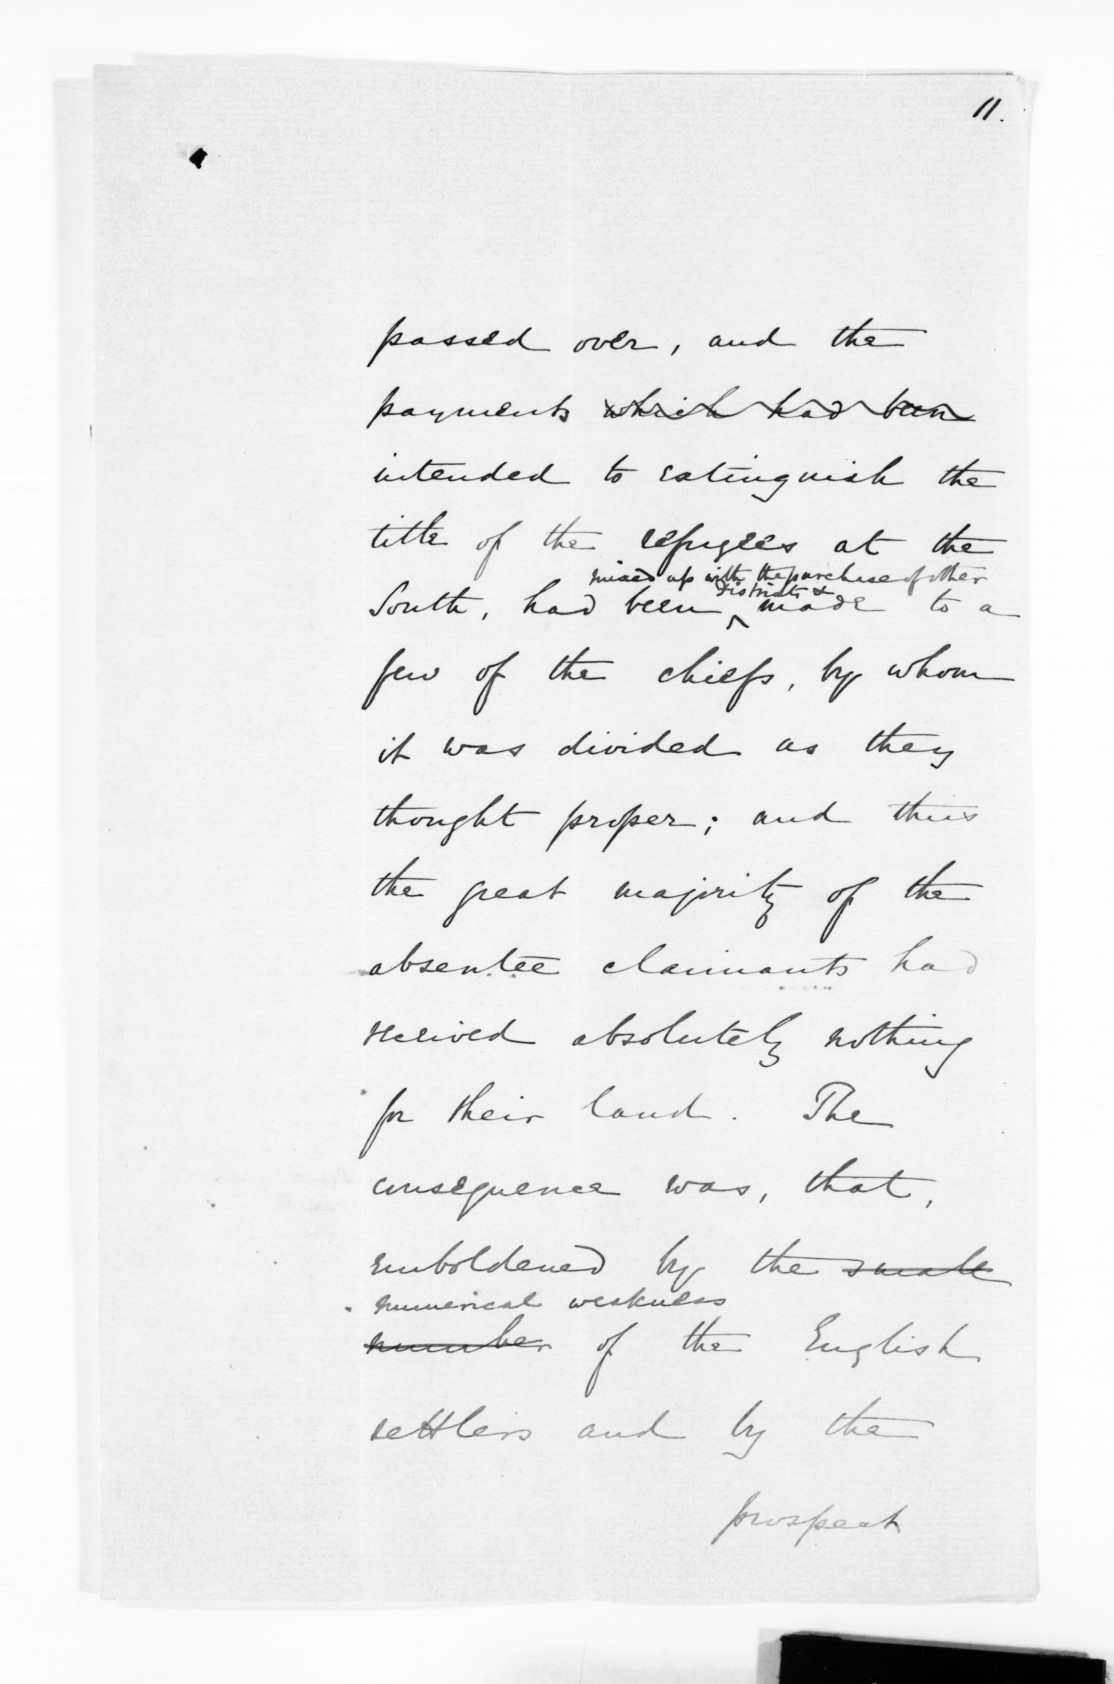 11.
passed over, and the
payments which had been
intended to extinguish the
title of the refugees at the
mixed up with the purchase of other
districts &
South, had been made to a
few of the chiefs, by whom
it was divided as they
thought proper; and thus
the great majority of the
absentee claimants had
received absolutely nothing
for their land. The
consequence was, that,
emboldened by the small
numerical weakness
number of the English
settlers and by the
prospect